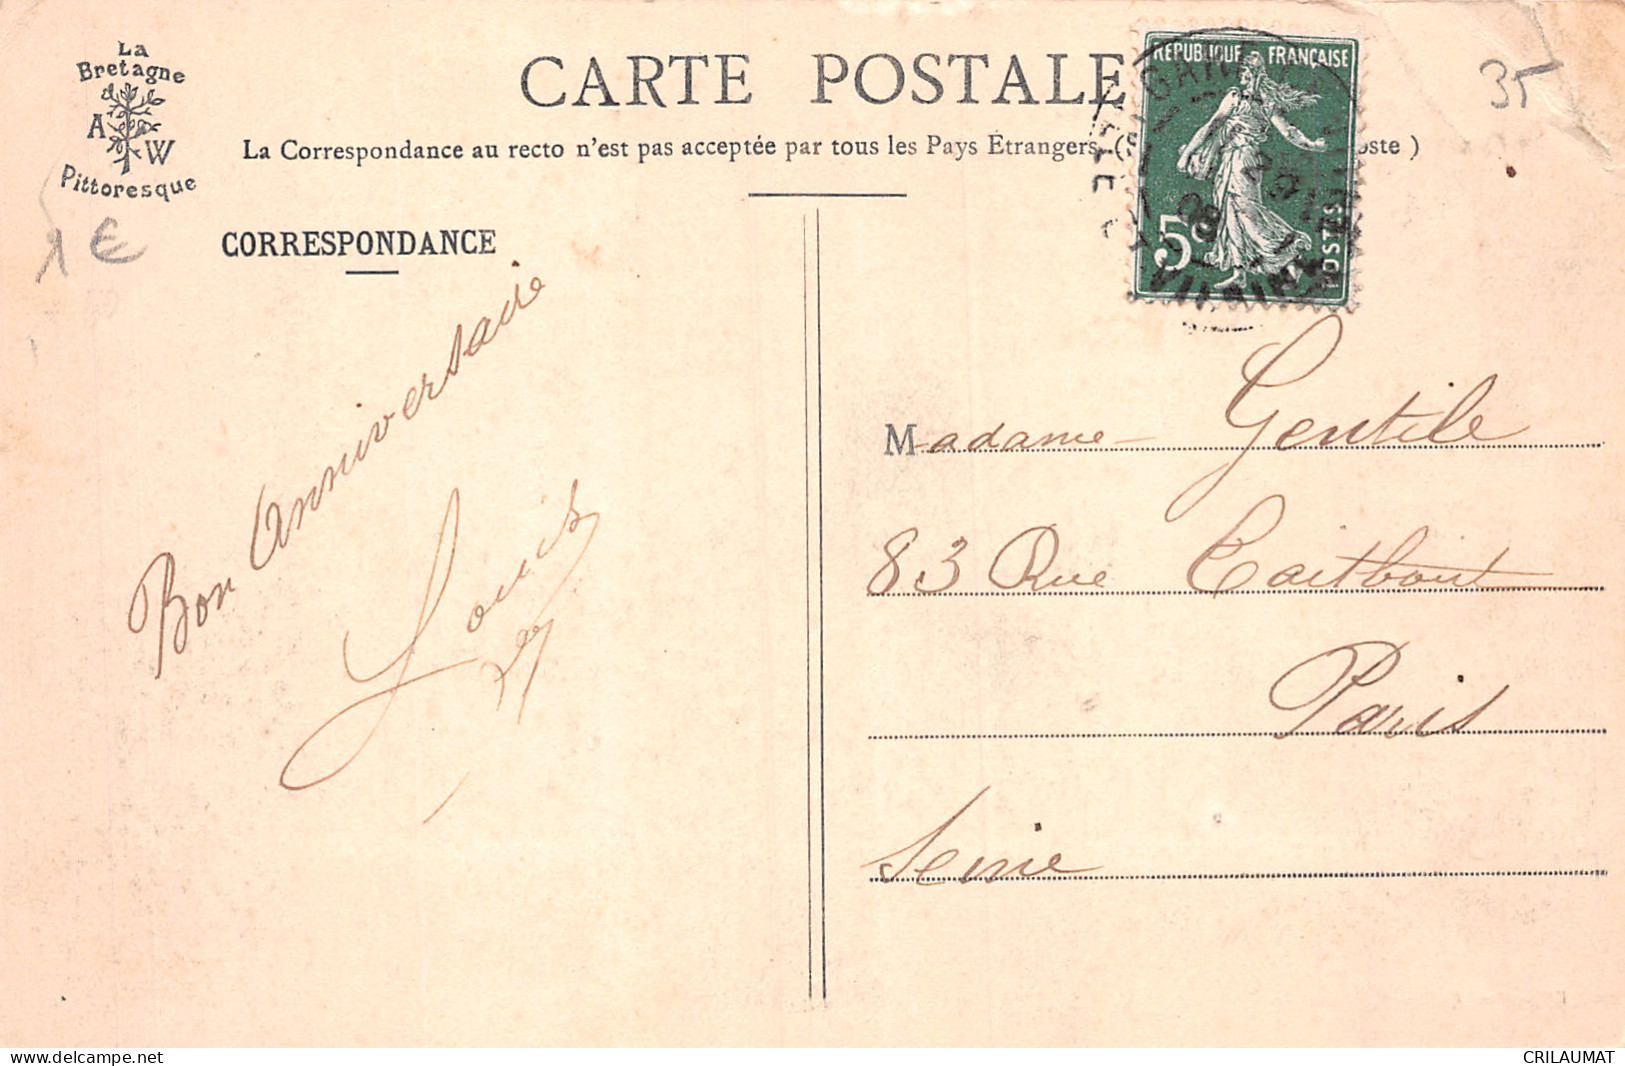 La
Bretagne
A
W
Pittoresque
CARTE POSTALE
La Correspondance au recto n'est pas acceptée par tous les Pays Étrangers. (
oste )
REPUBLIQUE FRANÇAISE
5c
POSTES
35
1 €
CORRESPONDANCE
Bon Anniversaire
Louis
Madame Gentile
83 Rue Taitbout
Paris
Seine
www.delcampe.net
CRILAUMAT